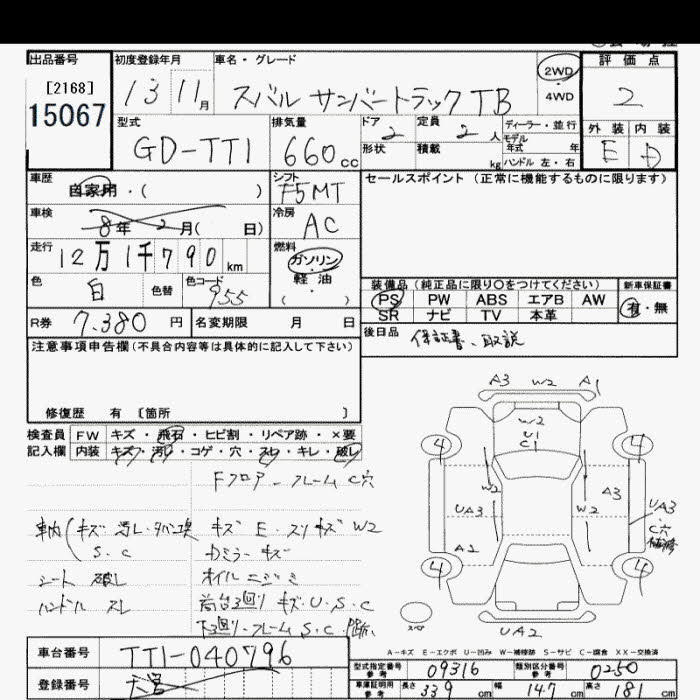 出品番号 初度登録年月 車名・グレード 評価点
[2168]
15067
13 11月 スバル サンバートラック TB 2WD 4WD 2
型式 排気量 ドア 定員 ディーラー・並行 外装 内装
GD-TT1 660cc 2 2人 モデル年式 年 E D
形状 積載 kg ハンドル 左・右
車歴 自家用・( ) シフト F5MT セールスポイント (正常に機能するものに限ります)
車検 8年2月( 日) 冷房 AC
走行 12万1千790km 燃料 ガソリン・軽油・( )
色 白 色替 色コード 955
装備品(純正品に限り○をつけてください) 新車保証書
PS PW ABS エアB AW 有・無
SR ナビ TV 本革
R券 7.380円 名変期限 月 日
後日品 保証書、取説
注意事項申告欄(不具合内容等は具体的に記入して下さい)
修復歴 有 [箇所 ]
検査員 FW キズ・飛石・ヒビ割・リペア跡・×要
記入欄 内装 キズ・汚レ・コゲ・穴・スレ・キレ・破レ
Fフロアーフレーム C穴
車内(キズ 汚レ・タバコ臭 キズ E・スリキズ W2
S.C カウミラーキズ
シート 破レ オイルニジミ
ハンドル スレ 荷台廻り キズ.U.S.C
下廻り-フレーム S.C
A3 W2 A1
W2
U1
C1
4 4
W2 W2
UA3 A3 UA3
C穴
A2
4 4
スペア
UA2
A-キズ E-エクボ U-凹み W-補修跡 S-サビ C-腐食 XX-交換済
車台番号 TT1-040796
型式指定番号 参考 09316 類別区分番号 参考 0250
登録番号
車庫証明用 参考 長さ 339cm 幅 147cm 高さ 181cm